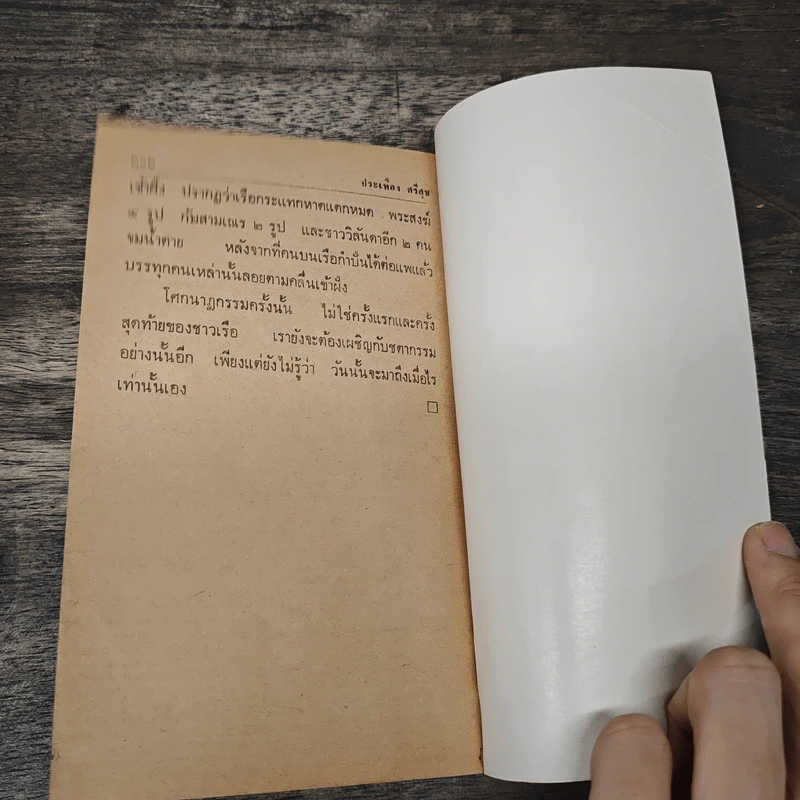 ประเทือง ศรีสุข
เข้าฝั่ง ปรากฏว่าเรือกระแทกหาดแตกหมด พระสงฆ์
๔ รูป กับสามเณร ๒ รูป และชาววิลันดาอีก ๒ คน
จมน้ำตาย หลังจากที่คนบนเรือกำปั่นได้ต่อแพแล้ว
บรรทุกคนเหล่านั้นลอยตามคลื่นเข้าฝั่ง
โศกนาฏกรรมครั้งนั้น ไม่ใช่ครั้งแรกและครั้ง
สุดท้ายของชาวเรือ เรายังจะต้องเผชิญกับชตากรรม
อย่างนั้นอีก เพียงแต่ยังไม่รู้ว่า วันนั้นจะมาถึงเมื่อไร
เท่านั้นเอง